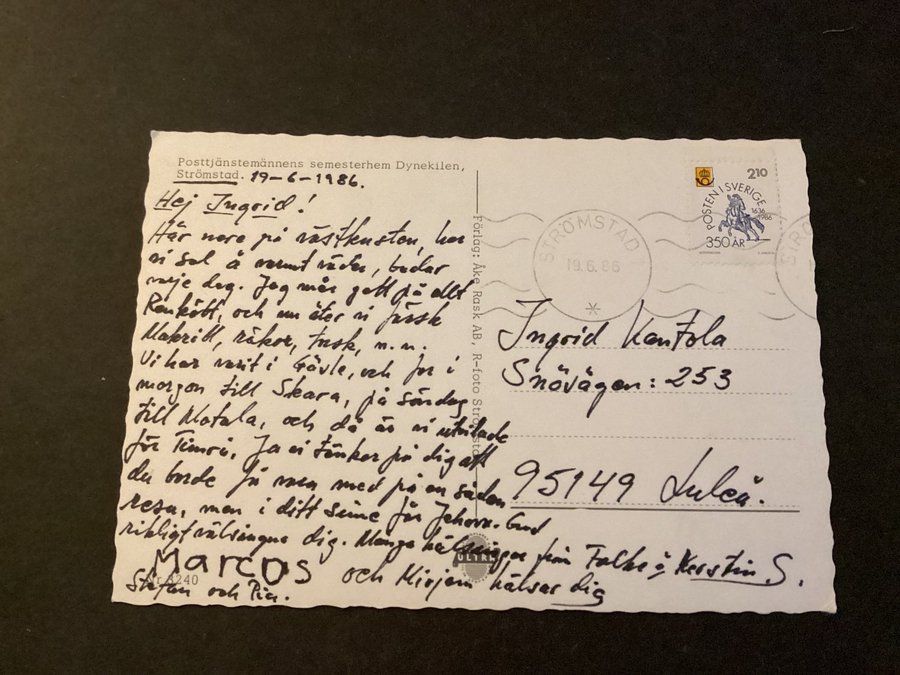 Posttjänstemännens semesterhem Dynekilen,
Strömstad. 19-6-1986.
Hej Ingrid!
Här nere på västkusten, har
vi sol å varmt väder, badar
varje dag. Jag mår gott på allt
Renkött, och nu äter vi färsk
Makrill, räkor, torsk, m.m.
Vi har varit i Gävle, och far i
morgon till Skara, på söndag
till Motala, och då är vi utvilade
för Timrå. Ja vi tänker på dig att
du borde få vara med på en sådan
resa, men i ditt sinne får Jehova Gud
rikligt välsigna dig. Många hälsningar från Folke & Kerstin S.
Marcos och Mirjam hälsar dig
Stefan och Pia.
Nr 3240
Förlag: Åke Rask AB, R-foto Strömstad
ULTRA
POSTEN I SVERIGE
1636 1986
350 ÅR
210
STRÖMSTAD
19.6.86
STRÖ
Ingrid Kantola
Snövägen: 253
95149 Luleå.